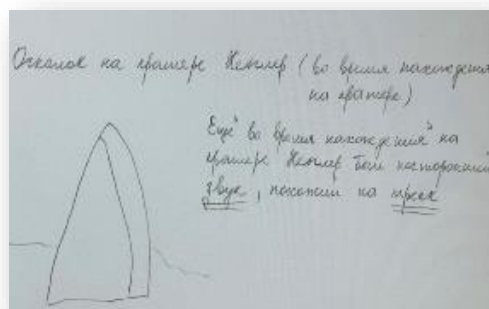 Осколок на кратере Кеплер (во время нахождения
на кратере)
Ещё во время нахождения на
кратере Кеплер был посторонний
звук, похожий на треск